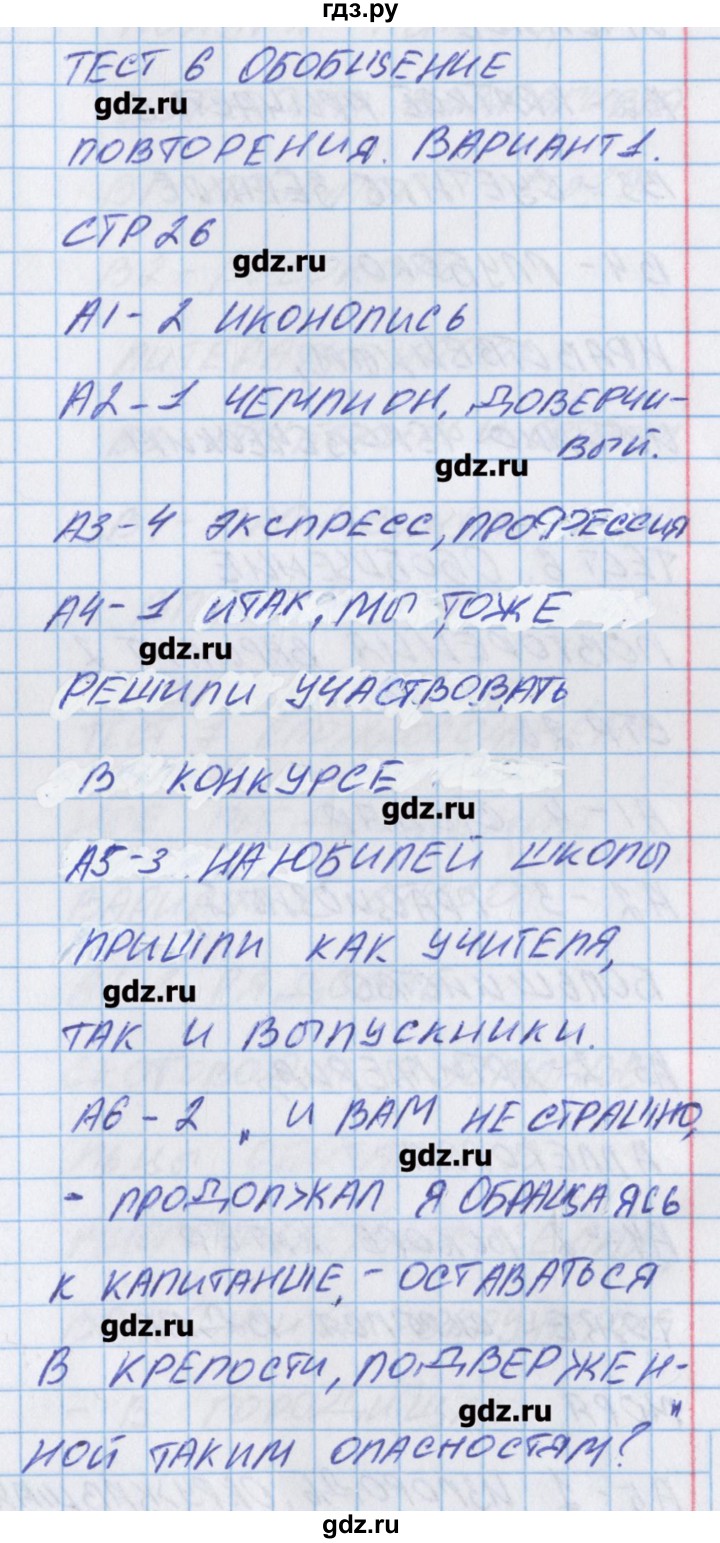 гдз.ру
ТЕСТ 6 ОБОБЩЕНИЕ
gdz.ru
ПОВТОРЕНИЯ. ВАРИАНТ 1.
СТР 26
gdz.ru
А1-2 ИКОНОПИСЬ
А2-1 ЧЕМПИОН, ДОВЕРЧИ-
ВЫЙ.
gdz.ru
А3-4 ЭКСПРЕСС, ПРОФЕССИЯ
А4-1 ИТАК, МЫ ТОЖЕ
gdz.ru
РЕШИЛИ УЧАСТВОВАТЬ
В КОНКУРСЕ
gdz.ru
А5-3 НА ЮБИЛЕЙ ШКОЛЫ
ПРИШЛИ КАК УЧИТЕЛЯ,
gdz.ru
ТАК И ВЫПУСКНИКИ.
А6-2 „И ВАМ НЕ СТРАШНО,
gdz.ru
- ПРОДОЛЖАЛ Я ОБРАЩАЯСЬ
К КАПИТАНШЕ, - ОСТАВАТЬСЯ
gdz.ru
В КРЕПОСТИ, ПОДВЕРЖЕН-
gdz.ru
НОЙ ТАКИМ ОПАСНОСТЯМ?"
gdz.ru